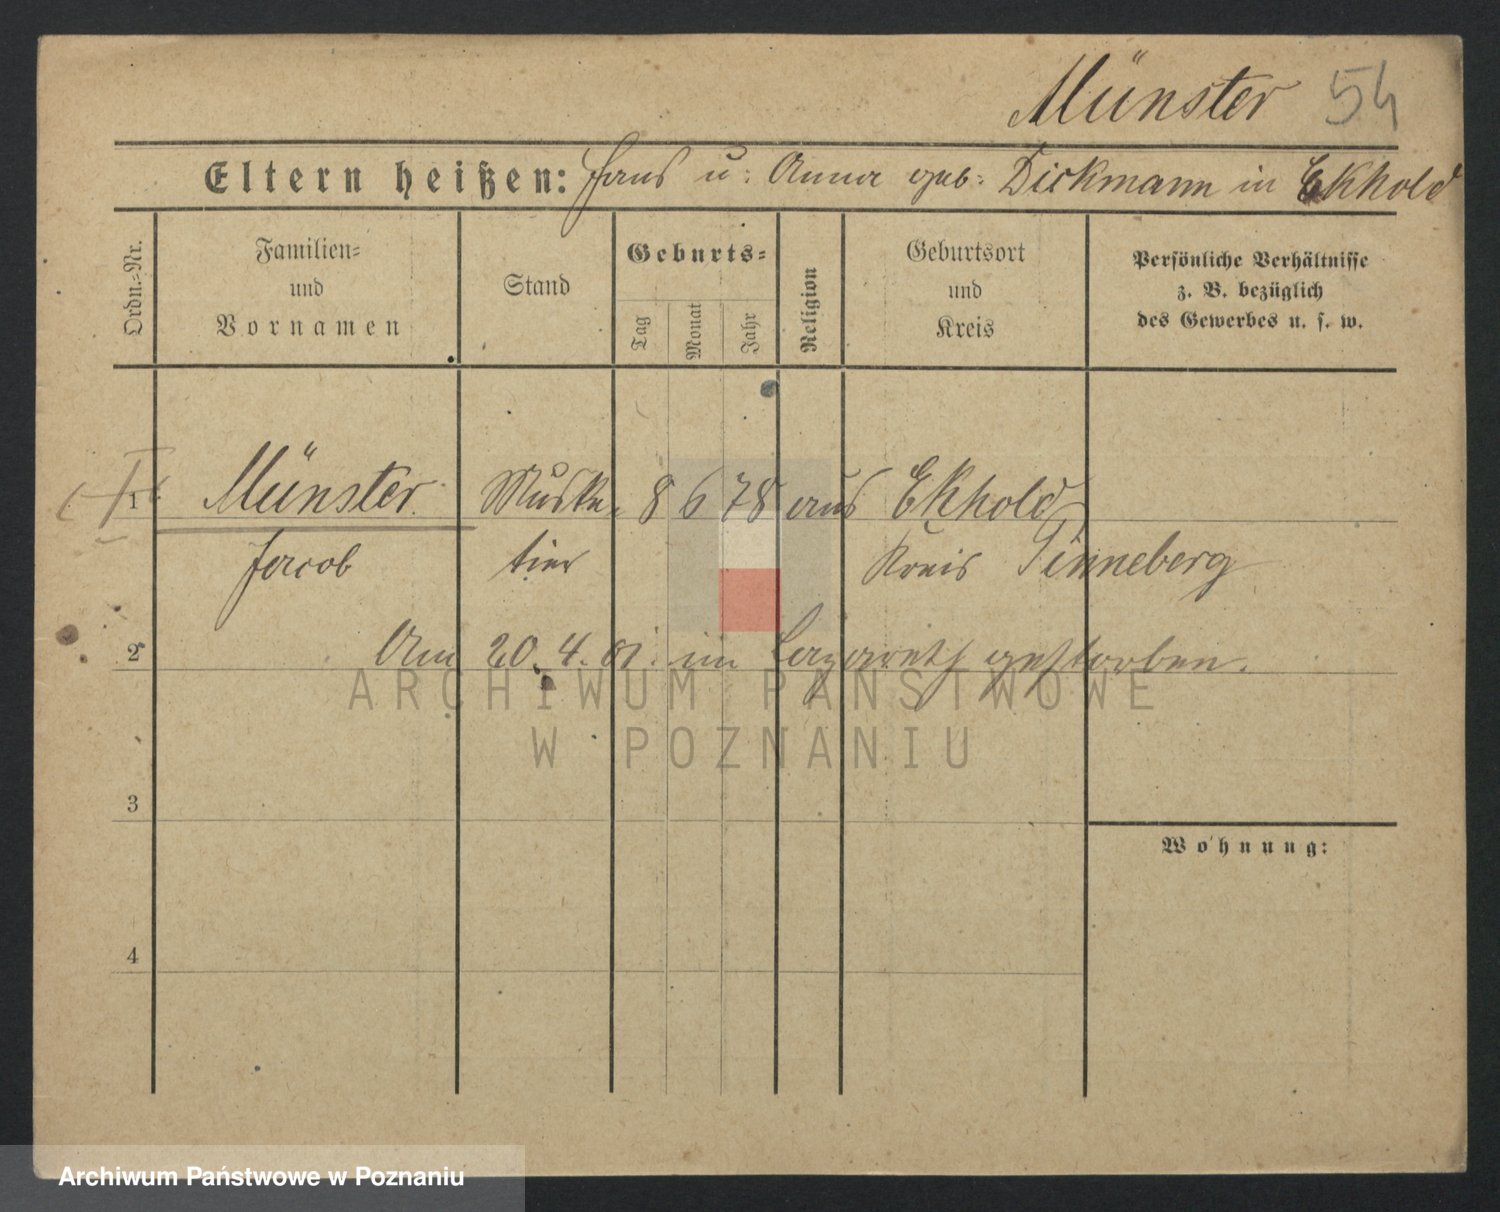 Münster 54
Eltern heißen: Hans u: Anna geb: Dickmann in Ekhold
Ordn.-Nr.
Familien-
und
Vornamen
Stand
Geburts-
Tag
Monat
Jahr
Religion
Geburtsort
und
Kreis
Persönliche Verhältnisse
z. B. bezüglich
des Gewerbes u. s. w.
1 Münster Muske- 8 6 78 aus Ekhold
Jacob tier Kreis Pinneberg
2 Am 20.4.01. im Lazareth gestorben.
ARCHIWUM PAŃSTWOWE
W POZNANIU
3
Wohnung:
4
Archiwum Państwowe w Poznaniu